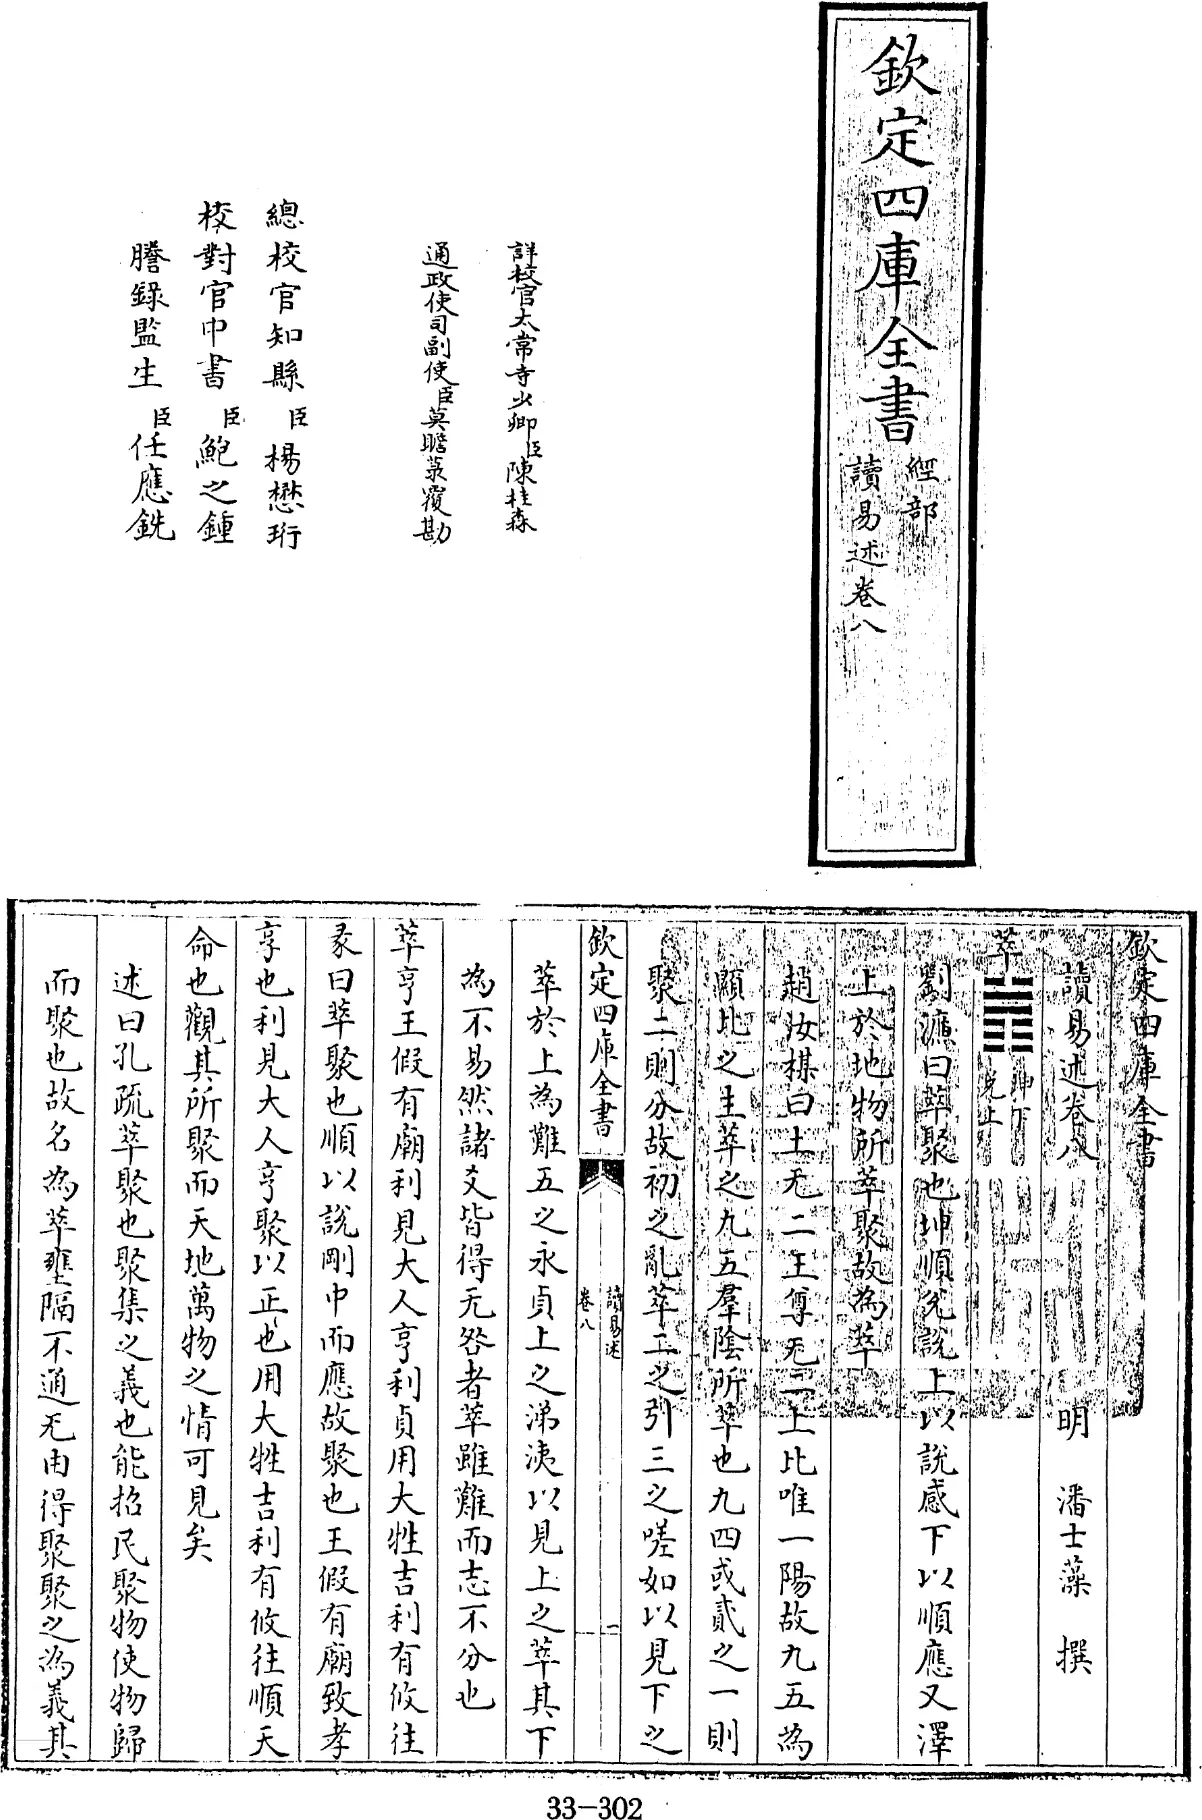 欽定四庫全書
經部
讀易述卷八
詳校官太常寺少卿臣陳桂森
通政使司副使臣莫瞻菉覆勘
總校官知縣臣楊懋珩
校對官中書臣鮑之鍾
謄錄監生臣任應銑
欽定四庫全書
讀易述卷八 明 潘士藻 撰
萃 坤下 兌上
劉濂曰萃聚也坤順兌說上以說感下以順應又澤
上於地物所萃聚故為萃
趙汝楳曰土无二王尊无二上比唯一陽故九五為
顯比之主萃之九五羣陰所萃也九四或貳之一則
聚二則分故初之亂萃二之引三之嗟如以見下之
欽定四庫全書
讀易述
卷八
一
萃於上為難五之永貞上之涕洟以見上之萃其下
為不易然諸爻皆得无咎者萃雖難而志不分也
萃亨王假有廟利見大人亨利貞用大牲吉利有攸往
彖曰萃聚也順以說剛中而應故聚也王假有廟致孝
享也利見大人亨聚以正也用大牲吉利有攸往順天
命也觀其所聚而天地萬物之情可見矣
述曰孔疏萃聚也聚集之義也能招民聚物使物歸
而聚也故名為萃壅隔不通无由得聚聚之為義其
33-302